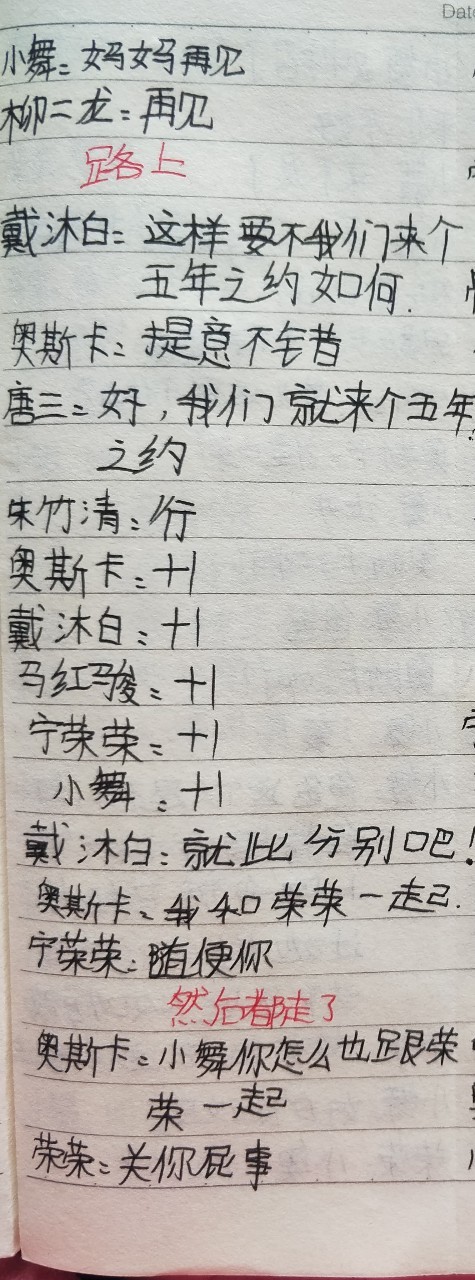 Date
小舞：妈妈再见
柳二龙：再见
路上
戴沐白：这样要不我们来个
五年之约如何.
奥斯卡：提意不错
唐三：好，我们就来个五年
之约
朱竹清：行
奥斯卡：+1
戴沐白：+1
马红骏：+1
宁荣荣：+1
小舞：+1
戴沐白：就此分别吧！
奥斯卡：我和荣荣一起.
宁荣荣：随便你
然后都走了
奥斯卡：小舞你怎么也跟荣
荣一起
荣荣：关你屁事